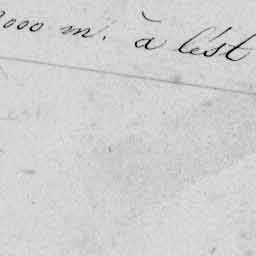 000 m. à l'est